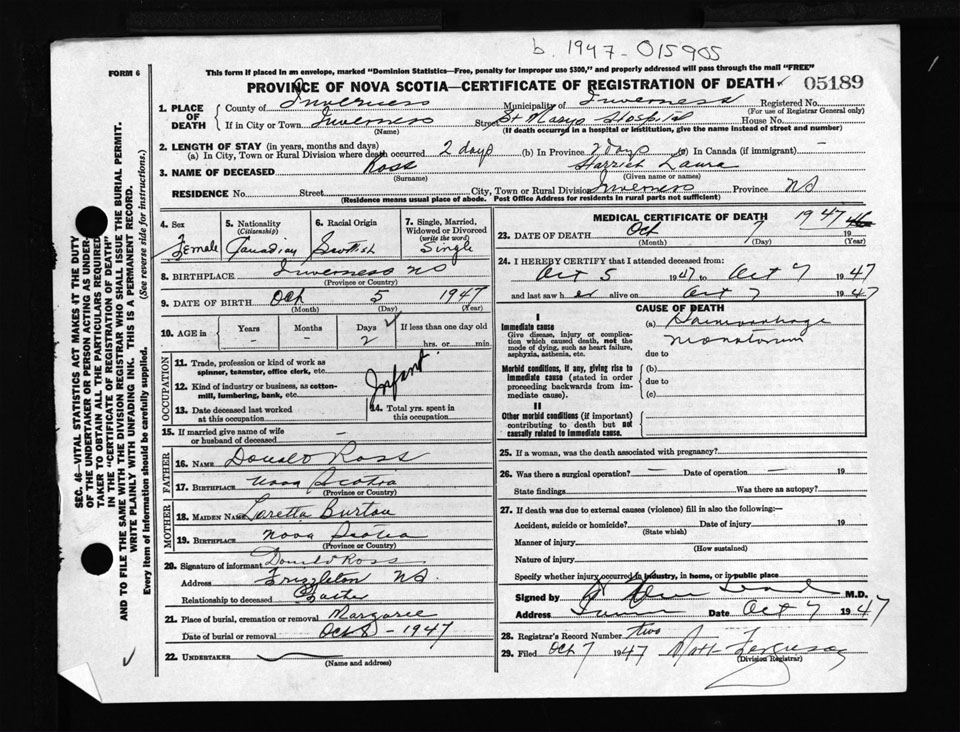 b. 1947-015905
FORM 6
This form if placed in an envelope, marked "Dominion Statistics—Free, penalty for improper use $300," and properly addressed will pass through the mail "FREE"
PROVINCE OF NOVA SCOTIA—CERTIFICATE OF REGISTRATION OF DEATH 05189
1. PLACE OF DEATH County of Inverness Municipality of Inverness Registered No.
(For use of Registrar General only)
If in City or Town Inverness Street St Marys Hospital House No.
(Name) (If death occurred in a hospital or institution, give the name instead of street and number)
2. LENGTH OF STAY (in years, months and days)
(a) In City, Town or Rural Division where death occurred 2 days (b) In Province 2 days (c) In Canada (if immigrant) —
3. NAME OF DECEASED Ross Laura
(Surname) (Given name or names)
RESIDENCE No. Street City, Town or Rural Division Inverness Province NS
(Residence means usual place of abode. Post Office Address for residents in rural parts not sufficient)
4. Sex Female
5. Nationality (Citizenship) Canadian
6. Racial Origin Scottish
7. Single, Married, Widowed or Divorced (write the word) Single
8. BIRTHPLACE Inverness NS
(Province or Country)
9. DATE OF BIRTH Oct 5 1947
(Month) (Day) (Year)
10. AGE in Years Months Days If less than one day old
- - 2 hrs. or min.
OCCUPATION
11. Trade, profession or kind of work as spinner, teamster, office clerk, etc.
Infant
12. Kind of industry or business, as cotton-mill, lumbering, bank, etc.
13. Date deceased last worked at this occupation
14. Total yrs. spent in this occupation
15. If married give name of wife or husband of deceased —
FATHER
16. NAME Donald Ross
17. BIRTHPLACE Nova Scotia
(Province or Country)
MOTHER
18. MAIDEN NAME Loretta Burton
19. BIRTHPLACE Nova Scotia
(Province or Country)
20. Signature of informant Donald Ross
Address Frizzleton NS
Relationship to deceased Father
21. Place of burial, cremation or removal Margaree
Date of burial or removal Oct 8 - 1947
22. UNDERTAKER
(Name and address)
MEDICAL CERTIFICATE OF DEATH
23. DATE OF DEATH Oct 7 1947 19
(Month) (Day) (Year)
24. I HEREBY CERTIFY that I attended deceased from:
Oct 5 1947 to Oct 7 1947
and last saw her alive on Oct 7 1947
CAUSE OF DEATH
I
Immediate cause
Give disease, injury or complication which caused death, not the mode of dying, such as heart failure, asphyxia, asthenia, etc.
(a) Haemorrhage
Neonatorum
due to
Morbid conditions, if any, giving rise to immediate cause (stated in order proceeding backwards from immediate cause).
(b)
due to
(c)
II
Other morbid conditions (if important) contributing to death but not causally related to immediate cause.
25. If a woman, was the death associated with pregnancy?
26. Was there a surgical operation? — Date of operation — 19
State findings Was there an autopsy?
27. If death was due to external causes (violence) fill in also the following:—
Accident, suicide or homicide? Date of injury 19
(State which)
Manner of injury
(How sustained)
Nature of injury
Specify whether injury occurred in industry, in home, or in public place
Signed by M.D.
Address Date Oct 7 1947
28. Registrar's Record Number two
29. Filed Oct 7 1947 Ferguson
(Division Registrar)
SEC. 46—VITAL STATISTICS ACT MAKES IT THE DUTY OF THE UNDERTAKER OR PERSON ACTING AS UNDERTAKER TO OBTAIN ALL THE PARTICULARS REQUIRED IN THE "CERTIFICATE OF REGISTRATION OF DEATH" AND TO FILE THE SAME WITH THE DIVISION REGISTRAR WHO SHALL ISSUE THE BURIAL PERMIT.
WRITE PLAINLY WITH UNFADING INK. THIS IS A PERMANENT RECORD.
Every item of information should be carefully supplied. (See reverse side for instructions.)